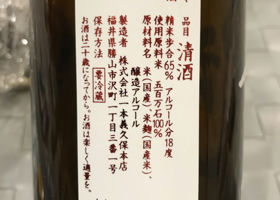 品目 清酒
精米歩合65% アルコール分18度
使用原料米 五百万石100%
原材料名 米(国産)、米麹(国産米)、
醸造アルコール
製造者 株式会社一本義久保本店
福井県勝山市沢町一丁目三番一号
保存方法 要冷蔵
お酒は二十歳になってから。お酒は楽しく適量を。